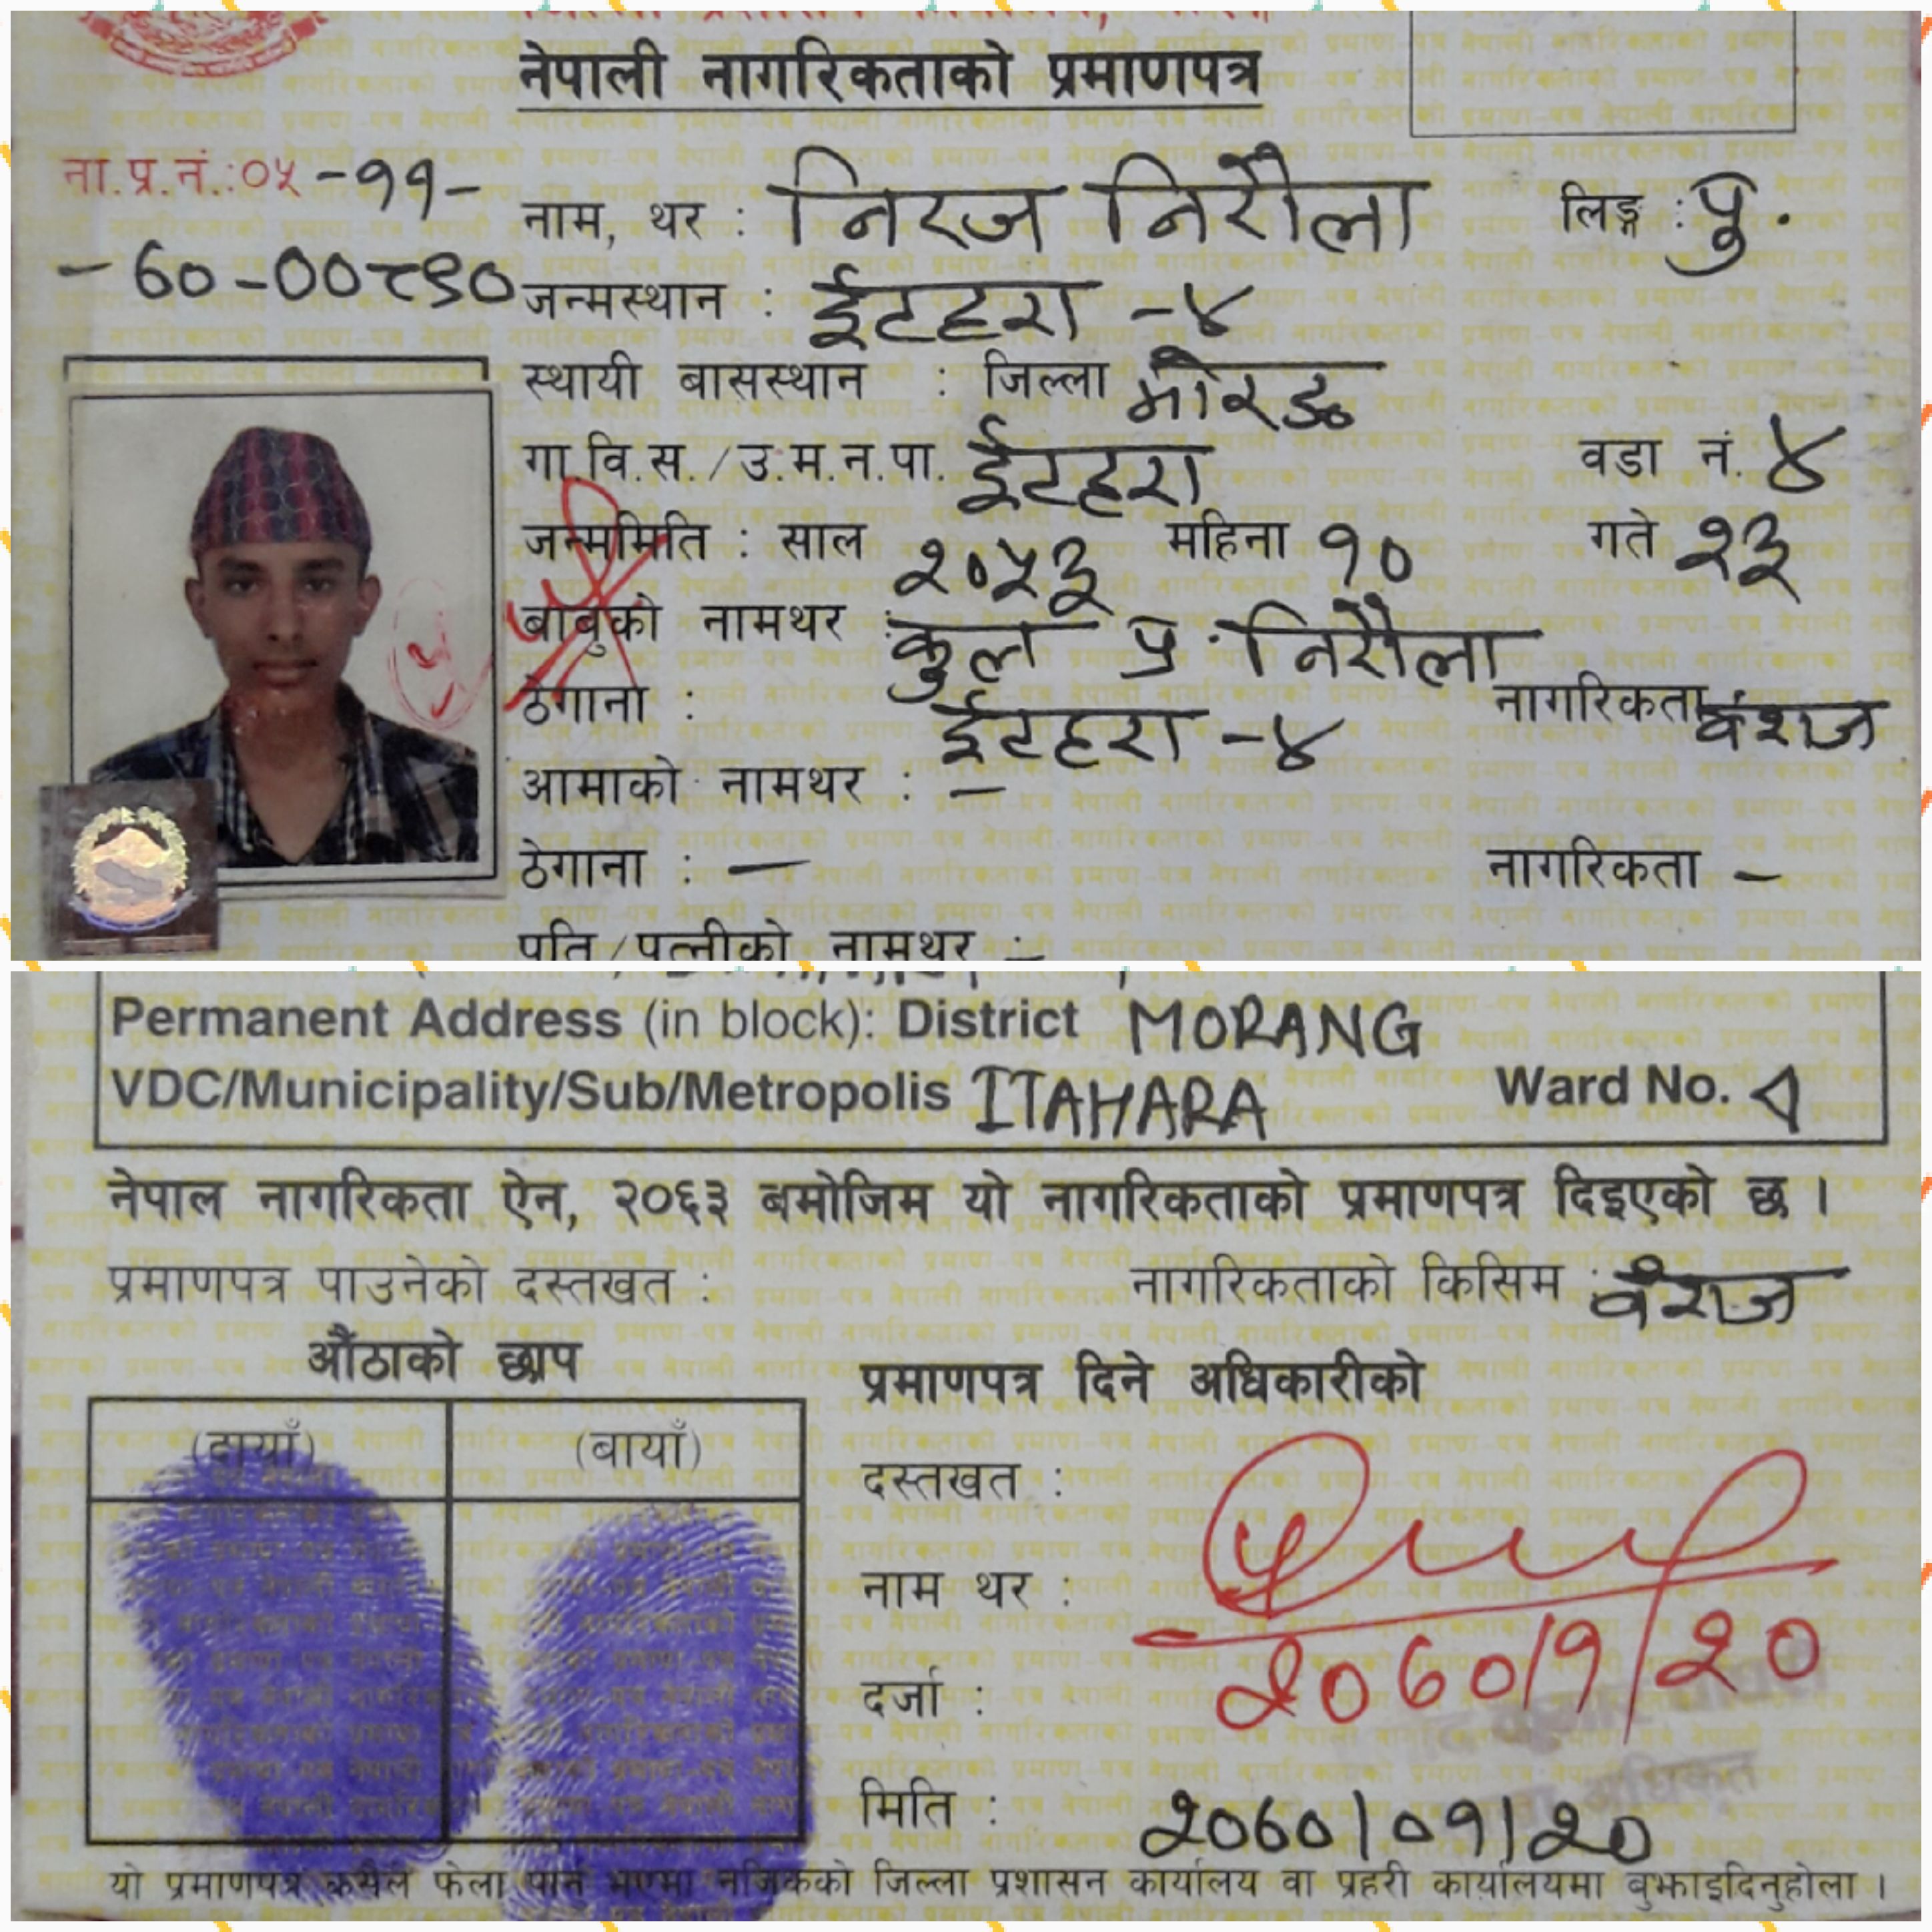 नेपाली नागरिकताको प्रमाणपत्र
ना.प्र.नं.:०५ -११-
- ७०-००८९०
नाम, थर : निरज निरौला लिङ्ग : पु.
जन्मस्थान : ईटहरा -४
स्थायी बासस्थान : जिल्ला मोरङ
गा.वि.स./उ.म.न.पा. ईटहरा वडा नं. ४
जन्ममिति : साल २०५३ महिना १० गते २३
बाबुको नामथर : कुल प्र. निरौला
ठेगाना : ईटहरा -४ नागरिकता वंशज
आमाको नामथर : -
ठेगाना : - नागरिकता -
पति/पत्नीको नामथर : -
Permanent Address (in block): District MORANG
VDC/Municipality/Sub/Metropolis ITAHARA Ward No. 4
नेपाल नागरिकता ऐन, २०६३ बमोजिम यो नागरिकताको प्रमाणपत्र दिइएको छ ।
प्रमाणपत्र पाउनेको दस्तखत : नागरिकताको किसिम : वंशज
औंठाको छाप
(दायाँ) (बायाँ)
प्रमाणपत्र दिने अधिकारीको
दस्तखत :
नाम थर :
२०७०/१/२०
दर्जा :
मिति : २०७०/०१/२०
यो प्रमाणपत्र कसैले फेला पारे भएमा नजिकको जिल्ला प्रशासन कार्यालय वा प्रहरी कार्यालयमा बुझाइदिनुहोला ।